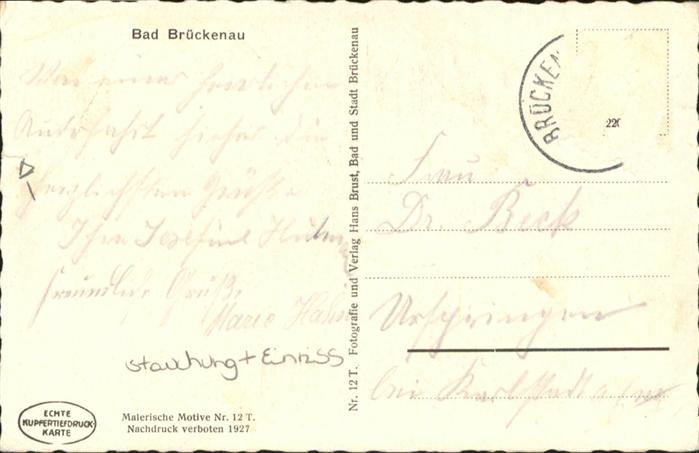 Bad Brückenau
Von einer herrlichen
Autofahrt hieher die
herzlichsten Grüße
Ihre Josefine
freundliche Grüße
Marie Hahn
Stauchung + Einriss
ECHTE
KUPFERTIEFDRUCK-
KARTE
Malerische Motive Nr. 12 T.
Nachdruck verboten 1927
Nr. 12 T. Fotografie und Verlag Hans Brust, Bad und Stadt Brückenau
BRÜCKEN
220
Frau
Dr. Beck
Urspringen
bei Karlstadt a.